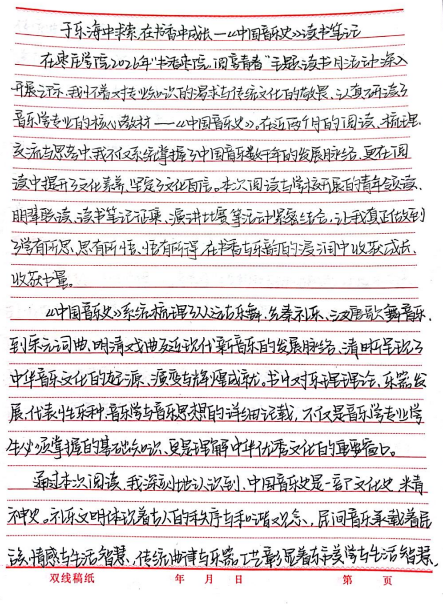 于乐海中求索,在书香中成长—《中国音乐史》读书笔记
在枣庄学院2026年“书香枣院,阅享青春”主题读书月活动深入
开展之际,我怀着对专业知识的渴求与传统文化的敬畏,认真研读了
音乐学专业的核心教材——《中国音乐史》。在近两个月的阅读、梳理、
交流与思考中,我不仅系统掌握了中国音乐数千年的发展脉络,更在阅
读中提升了文化素养,坚定了文化自信。本次阅读与学校开展的青年领读、
朋辈联读、读书笔记征集、演讲比赛等活动紧密结合,让我真正做到
了学有所思,思有所悟,悟有所得,在书香与乐韵的浸润中收获成长,
收获力量。
《中国音乐史》系统梳理了从远古乐舞、先秦礼乐、汉唐歌舞音乐,
到宋元词曲、明清戏曲及近现代新音乐的发展脉络,清晰呈现了
中华音乐文化的起源、演变与辉煌成就。书中对乐理理论、乐器发
展、代表性乐种、音乐学与音乐思想的详细记载,不仅是音乐学专业学
生必须掌握的基础知识,更是理解中华优秀文化的重要窗口。
通过本次阅读,我深刻地认识到,中国音乐史是一部文化史、精
神史。礼乐文明体现着古人的秩序与和谐观念,民间音乐承载着民
族情感与生活智慧,传统曲律与乐器工艺彰显着东方美学与生活智慧,
双线稿纸 年 月 日 第 页